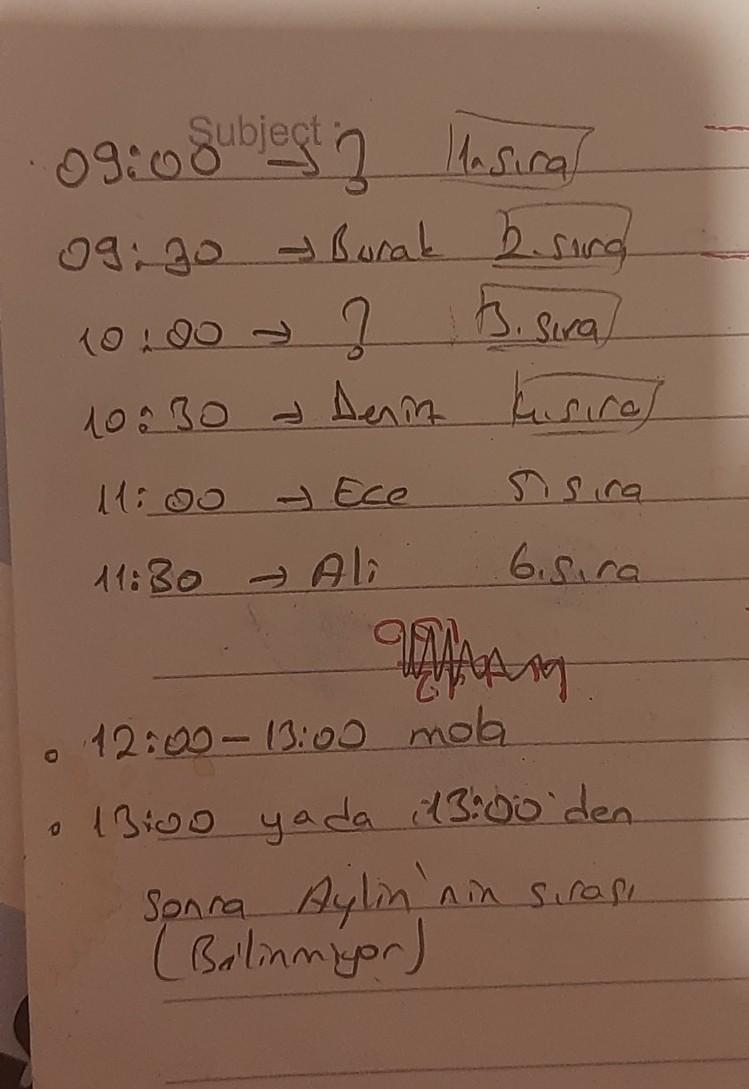 Subject:
09:00 → ? 1. sıra
09:30 → Burak 2. sıra
10:00 → ? 3. sıra
10:30 → Deniz 4. sıra
11:00 → Ece 5. sıra
11:30 → Ali 6. sıra
• 12:00 – 13:00 mola
• 13:00 yada 13:00'den
sonra Aylin'nin sırası
(Bilinmiyor)